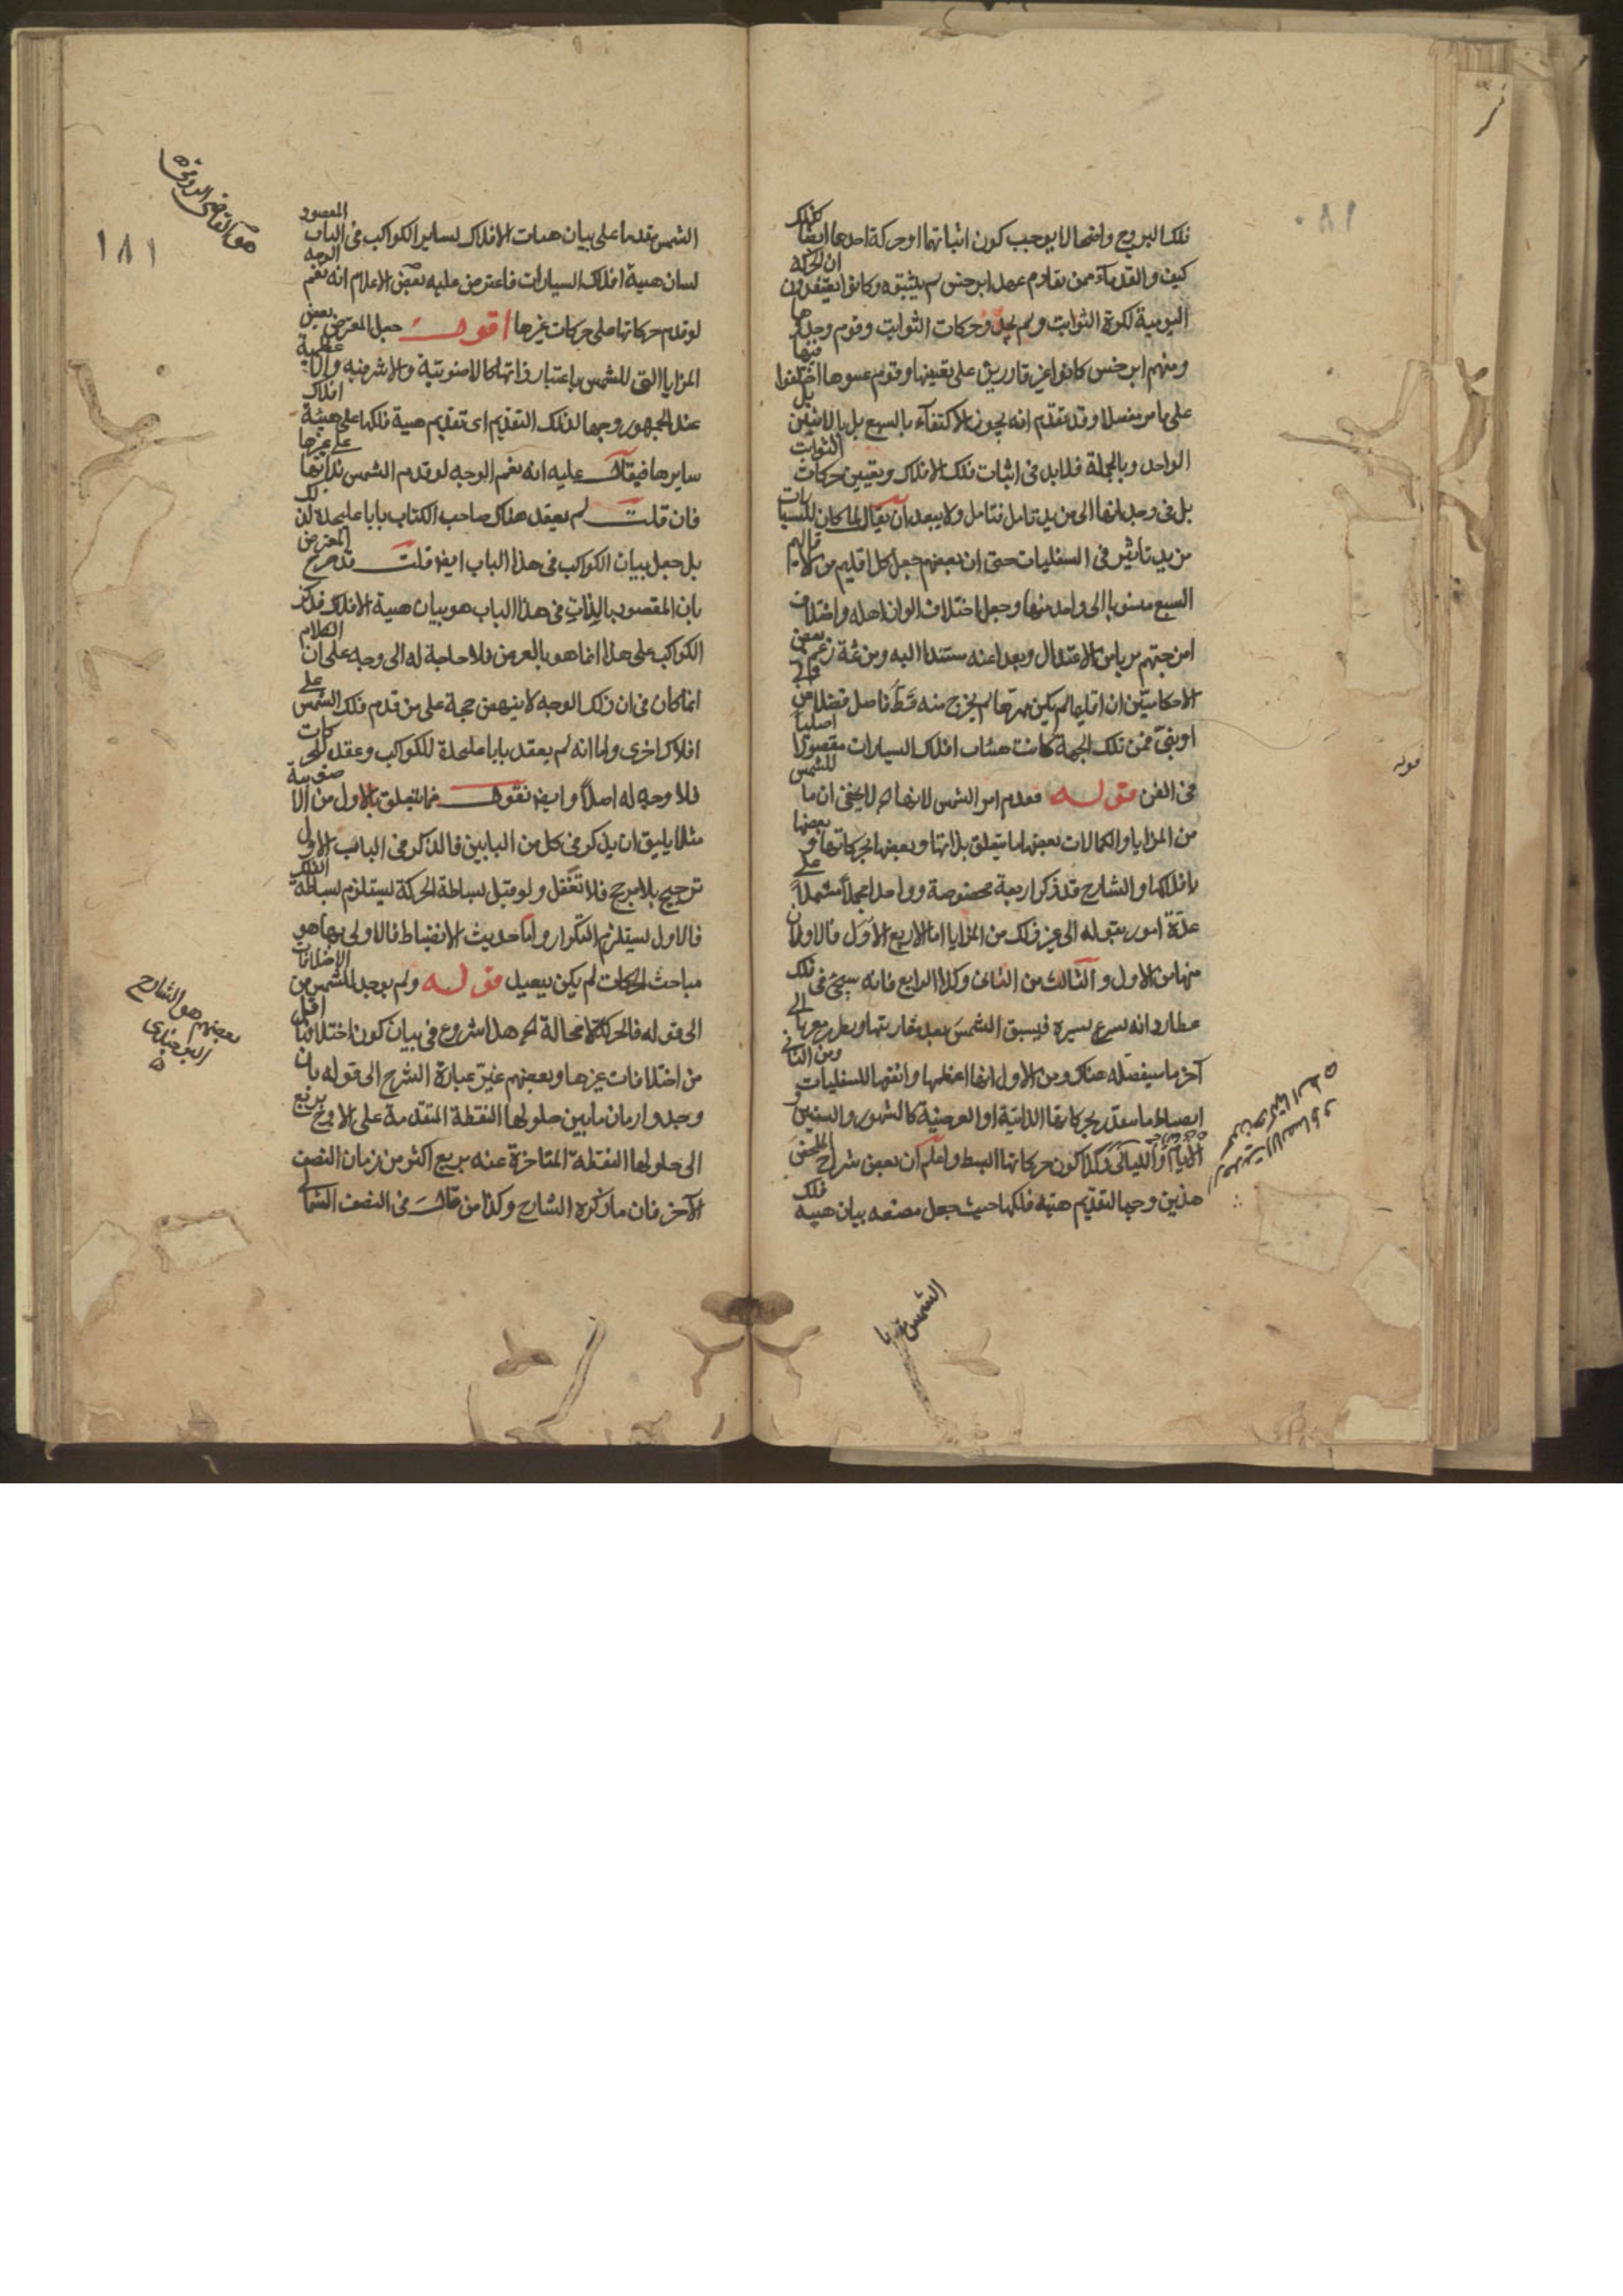 فلك البروج واضحا لا يوجب كون اثباتها او حركة احدها ايضا كذلك
كيف والقدماء ممن تقادم عهد ابرخس لم يثبتوه وكانوا يعتقدون ان الحركة
اليومية لكرة الثوابت ولم يجدوا حركات الثوابت وقوم وجدوها
ومنهم ابرخس كانوا غير قادرين على تعيينها وقوم عينوها اختلفوا فيها
على ما مر مفصلا وقد تقدم انه يجوز الاكتفاء بالسبع بل بالاثنين بل
الواحد وبالجملة فلا بد في اثبات فلك الافلاك وتعيين حركات الثوابت
بل في وجدانها الى مزيد تامل فتامل ولا يبعد ان يقال لما كان للسيارات
مزيد تاثير في السفليات حتى ان بعضهم جعل كل اقليم من الاقاليم
السبع منسوبا الى واحد منها وجعل اختلاف الوان اهله واختلاف
امزجتهم قربا من الاعتدال وبعدا عنه مستندا اليه ومن ثمة زعم بعض
الاحكاميين ان اقليما لم يكن لم يخرج منه قط فاضل فضلا عن ولي
او نبي فمن تلك الجهة كانت هيئات افلاك السيارات مقصودا اصليا
في الفن قوله فقدم امر الشمس لانها الخ لا يخفى ان ما للشمس
من المزايا والكمالات بعضها ما يتعلق بذاتها وبعضها بحركاتها وبعضها
بافلاكها والشارح قد ذكر اربعة مخصوصة وواحدا مجملا مشتملا على
عدة امور بقوله الى غير ذلك من المزايا اما الاربع الاول فالاولان
منها من الاول والثالث من الثاني وكذا الرابع فانه سيجئ في فلك
عطارد انه يسرع سيره فيسبق الشمس بعد مقارنتها الى
آخر ما سيفصله هناك ومن الاول انها اعظمها وانفعها للسفليات ومن الثاني
انضباط ما يتقدر بحركاتها الذاتية او العرضية كالشهور والسنين و
الايام والليالي وكذا كون حركاتها ابسط واعلم ان بعض شراح الملخص
هذين وجها لتقديم هيئة فلكها حيث جعل مصنفه بيان هيئة فلك
الشمس
١٨١
الشمس مقدما على بيان هيئات الافلاك لساير الكواكب في الباب المعقود
لبيان هيئة افلاك السيارات فاعترض عليه بعض الاعلام انه نعم الوجه
لو قدم حركاتها على حركات غيرها اقول جعل المعترض بعض
المزايا التي للشمس باعتبار ذاتها كالاضوئية والاشرفية والاعظمية
عند الجمهور وجها لذلك التقديم اي تقديم هيئة فلكها على هيئة افلاك
سايرها فيقال عليه انه نعم الوجه لو قدم الشمس بذاتها على غيرها
فان قلت لم يعقد هناك صاحب الكتاب بابا عليحدة لذلك
بل جعل بيان الكواكب في هذا الباب ايضا قلت قد صرح المعترض
بان المقصود بالذات في هذا الباب هو بيان هيئة الافلاك فذكر
الكواكب على هذا انما هو بالعرض فلا حاجة له الى وجه على ان الكلام
انما كان في ان ذلك الوجه لا ينهض حجة على من قدم فلك الشمس على
افلاك اخرى ولما انه لم يعقد بابا عليحدة للكواكب وعقد للحركات
فلا وجه له اصلا وايضا نقول فما يتعلق بالاول من الاضوئية
مثلا يليق ان يذكر في كل من البابين فالذكر في الباب الاول
ترجيح بلا مرجح فلا تغفل ولو قيل بساطة الحركة يستلزم بساطة الفلك
فالاول يستلزم التكرار واما حديث الانضباط فالاولى بها هو
مباحث الحركات لم يكن ببعيد قوله ولم يوجد للشمس من الاختلافات
الى قوله فالحركة لا محالة الخ هذا شروع في بيان كون اختلافها اقل
من اختلافات غيرها وبعضهم غير عبارة الشرح الى قوله بان
وجدوا زمان ما بين حلولها النقطة المتقدمة على الاوج بربع
الى حلولها النقطة المتاخرة عنه بربع اكثر من زمان النصف
الآخر فان ما ذكره الشارح وكذا من قال في النصف الشمالي
بعضهم هو الشارح
البرجندي